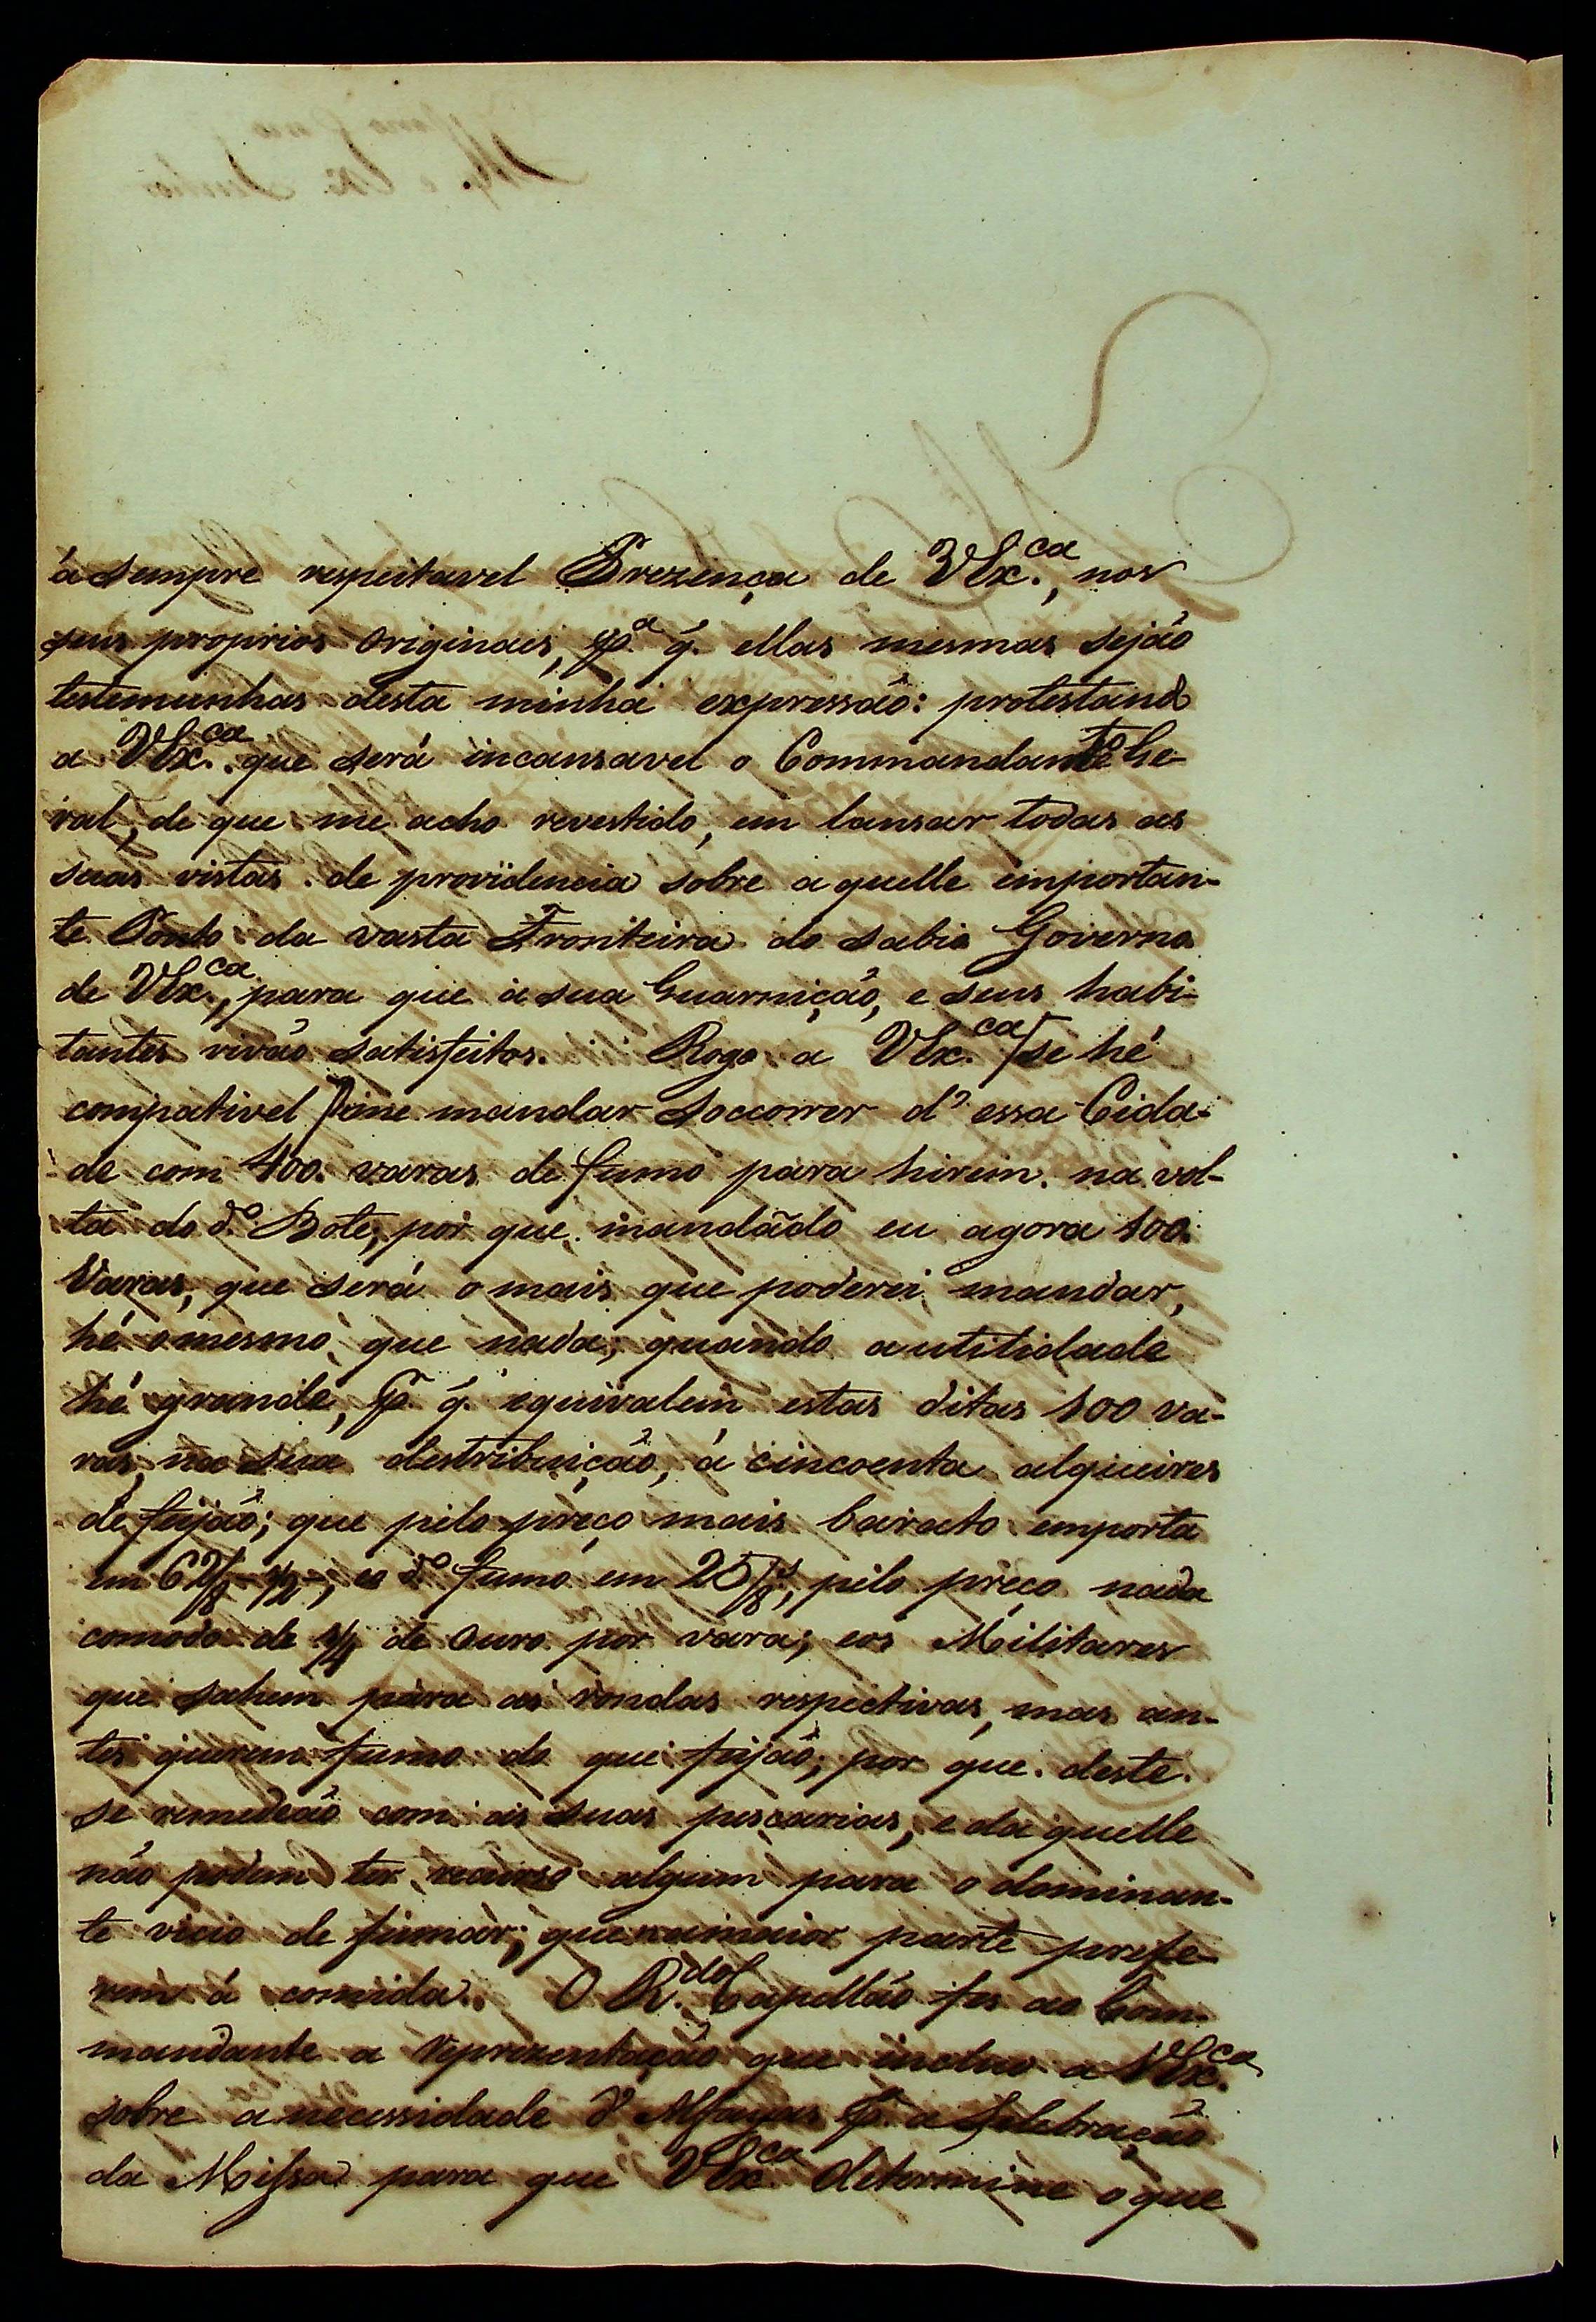 á sempre respeitavel Prezença de VEx.ᶜᵃ, nos
seus proprios Originaes, p.ᵃ q̃. ellas mesmas sejão
testemunhas desta minha expressão: protestando
a VEx.ᶜᵃ que será incansavel o Commandante Ge-
ral, de que me acho revestido, em lansar todas as
suas vistas de providencia sobre aquelle importan-
te Ponto da vasta Fronteira do sabio Governo
de VEx.ᶜᵃ, para que a sua Guarnição, e seus habi-
tantes vivão satisfeitos. Rogo a VEx.ᶜᵃ /se hé
compativel/ me mandar soccorrer d'essa Cida-
de com 400. varas de fumo para hirem na vol-
ta do d.º Bote, por que mandãdo eu agora 100.
Varas, que será o mais que poderei mandar,
hé o mesmo que nada; quando a utilidade
hé grande, p. q̃. equivalem estas ditas 100 va-
ras, na sua destribuição, á cincoenta alqueires
de feijão; que pelo preço mais barato emporta
em 62/8 1/2, e o d.º fumo em 25/8.ˢ, pelo preço nada
comodo de 1/4 de Ouro por vara; e os Militares
que sahem para as rondas respectivas, mas an-
tes querem fumo do que feijão; por que deste
se remedeão com as suas pescarias, e daquelle
não podem ter recurso algum para o dominan-
te vicio de fumar; que na maior parte prefe-
rem á comida. O R.ᵈᵒ Capellão fes ao Com-
mandante a reprezentação que incluo a VEx.ᶜᵃ
sobre a necessidade d'Alfayas p.ᵃ a Selebração
da Missa para que VEx.ᶜᵃ determine o que